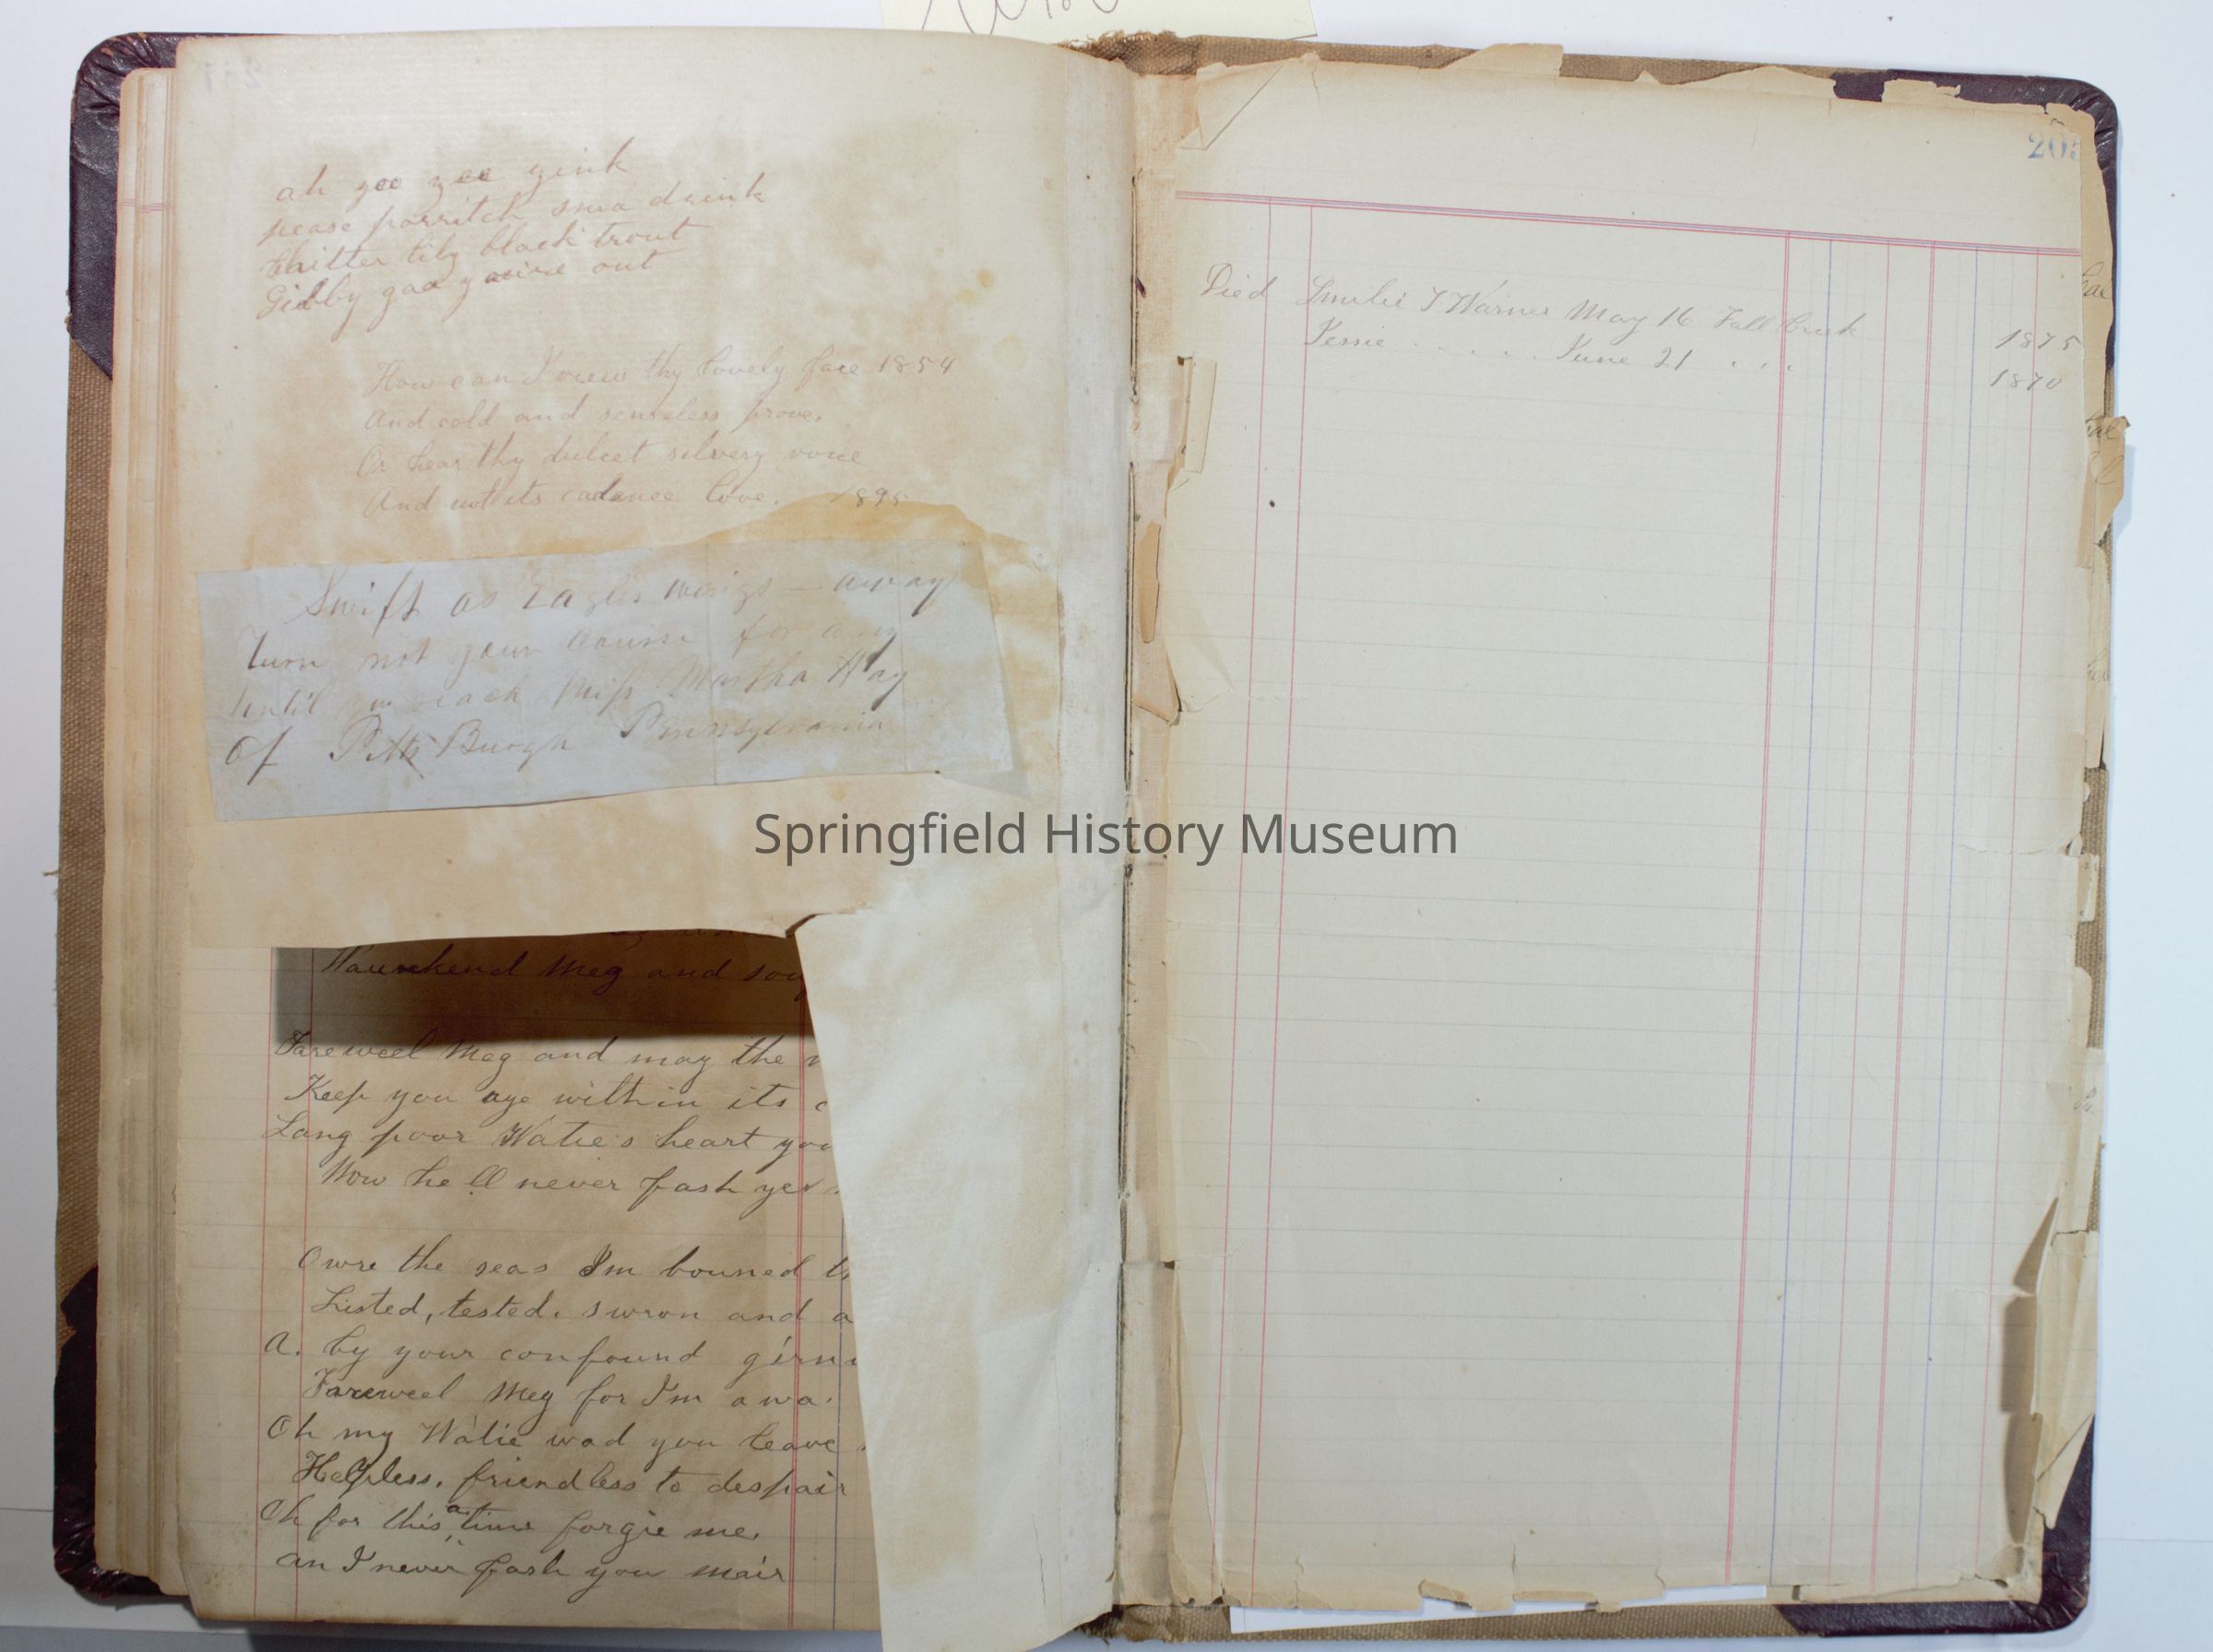 ah zoo zee zink
pease parritch sma drink
Chitter tily black trout
Gibby gaa youire out
How can I view thy lovely face 1854
And cold and senseless prove.
Or hear thy dulcet silvery voice
And not its cadence love. 1895
Swift as Eagles wings — away
Turn not your course for any
Until you reach Miss Martha Hay
Of Pitts Burgh Pennsylvania
Meg and
Fareweel Meg and may the
Keep you aye within its
Lang poor Watie's heart you
Now he ll never fash yer
Owre the seas Im bouned
Listed, tested. swron and a
A. by your confound girni
Fareweel Meg for I'm awa.
Oh my Watie wad you leave
Helpless. friendless to despair
Oh for this a time forgie me.
an I never fash you mair
205
Died Emilie T Warner May 16 Fall Creek 1875
Jessie . . . . . June 21 . . . 1870
Springfield History Museum